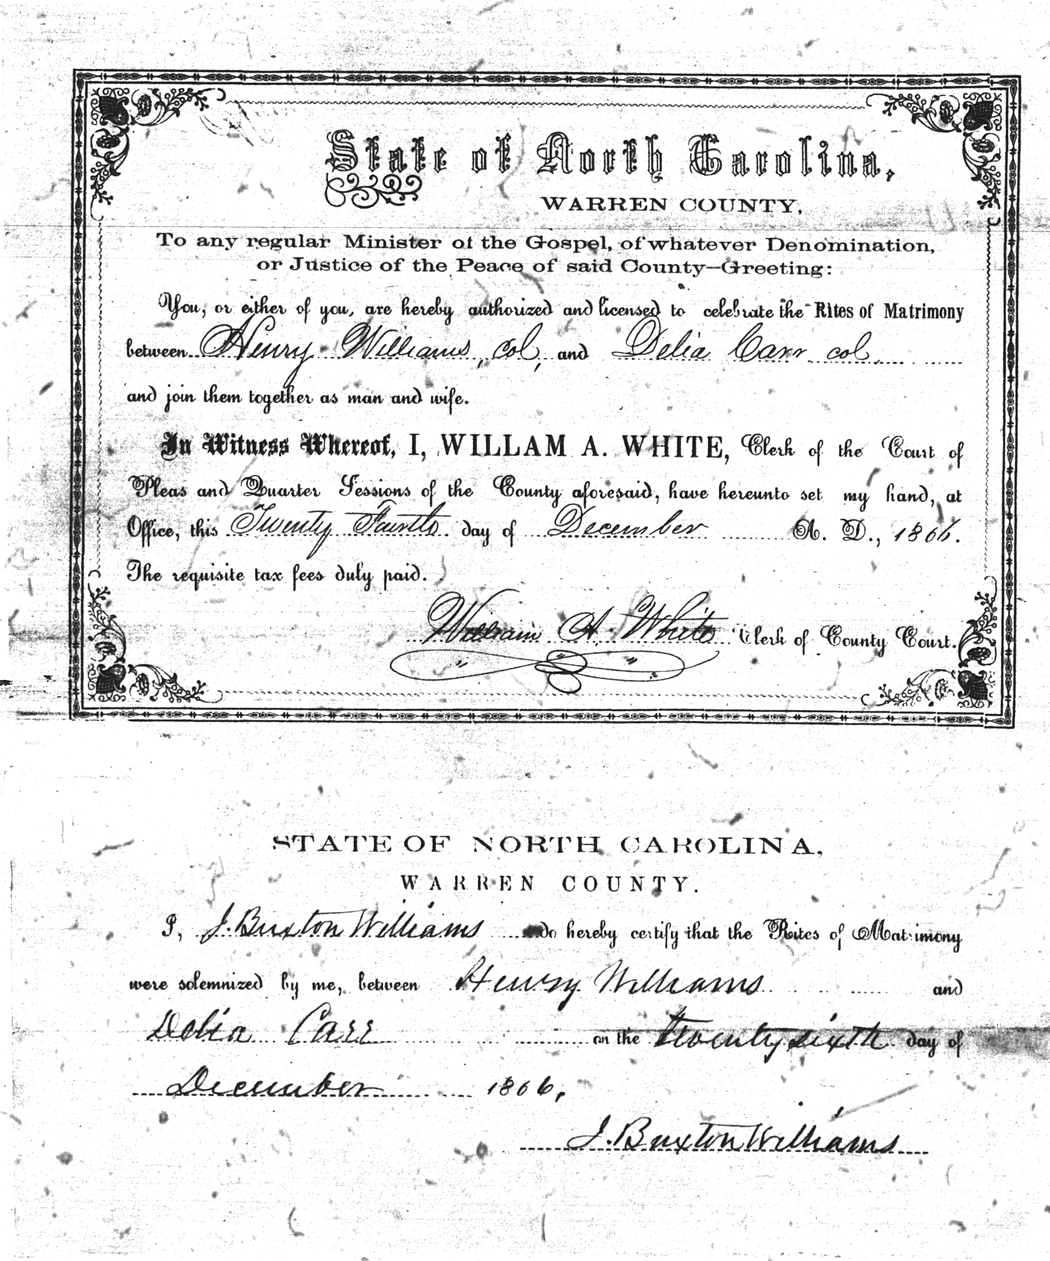 State of North Carolina,
WARREN COUNTY,
To any regular Minister of the Gospel, of whatever Denomination,
or Justice of the Peace of said County—Greeting:
You, or either of you, are hereby authorized and licensed to celebrate the Rites of Matrimony
between Henry Williams, col, and Delia Carr col,
and join them together as man and wife.
In Witness Whereof, I, WILLAM A. WHITE, Clerk of the Court of
Pleas and Quarter Sessions of the County aforesaid, have hereunto set my hand, at
Office, this Twenty Fourth day of December A. D., 1866.
The requisite tax fees duly paid.
William A. White Clerk of County Court.
STATE OF NORTH CAROLINA,
WARREN COUNTY.
I, J. Buxton Williams do hereby certify that the Rites of Matrimony
were solemnized by me, between Henry Williams and
Delia Carr on the twenty sixth day of
December 1866,
J. Buxton Williams